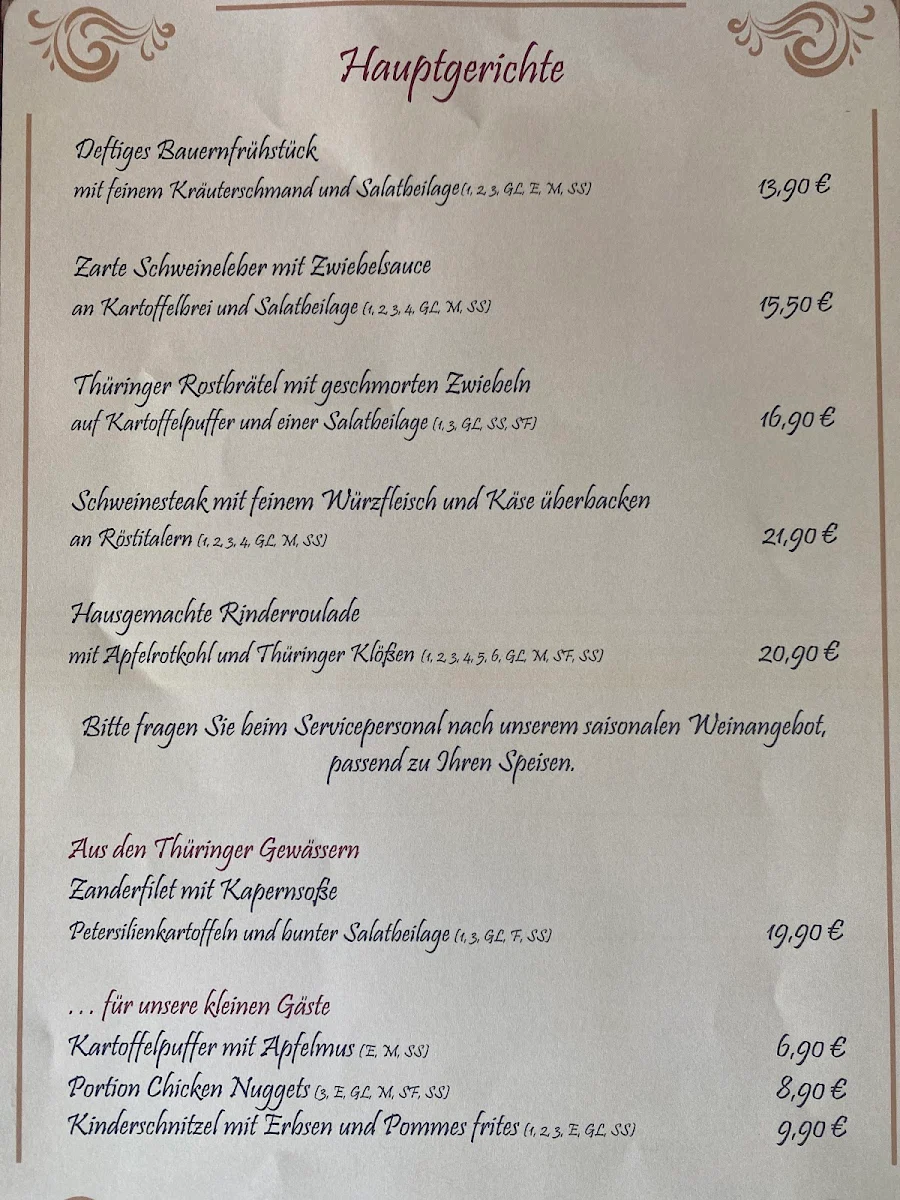 Hauptgerichte
Deftiges Bauernfrühstück
mit feinem Kräuterschmand und Salatbeilage (1, 2 3, GL, E, M, SS) 13,90 €
Zarte Schweineleber mit Zwiebelsauce
an Kartoffelbrei und Salatbeilage (1, 2 3, 4, GL, M, SS) 15,50 €
Thüringer Rostbrätel mit geschmorten Zwiebeln
auf Kartoffelpuffer und einer Salatbeilage (1, 3, GL, SS, SF) 16,90 €
Schweinesteak mit feinem Würzfleisch und Käse überbacken
an Röstitalern (1, 2 3, 4, GL, M, SS) 21,90 €
Hausgemachte Rinderroulade
mit Apfelrotkohl und Thüringer Klößen (1, 2 3, 4, 5, 6, GL, M, SF, SS) 20,90 €
Bitte fragen Sie beim Servicepersonal nach unserem saisonalen Weinangebot,
passend zu Ihren Speisen.
Aus den Thüringer Gewässern
Zanderfilet mit Kapernsoße
Petersilienkartoffeln und bunter Salatbeilage (1, 3, GL, F, SS) 19,90 €
... für unsere kleinen Gäste
Kartoffelpuffer mit Apfelmus (E, M, SS) 6,90 €
Portion Chicken Nuggets (3, E, GL, M, SF, SS) 8,90 €
Kinderschnitzel mit Erbsen und Pommes frites (1, 2 3, E, GL, SS) 9,90 €